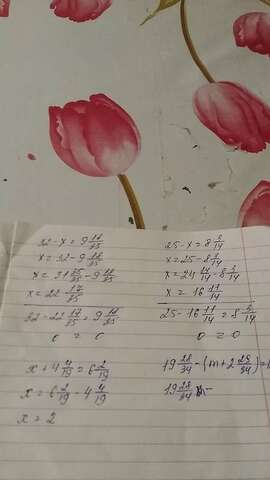 32 - x = 9 18/35
x = 32 - 9 18/35
x = 31 35/35 - 9 18/35
x = 22 17/35
32 - 22 17/35 = 9 18/35
0 = 0
25 - x = 8 3/14
x = 25 - 8 3/14
x = 24 14/14 - 8 3/14
x = 16 11/14
25 - 16 11/14 = 8 3/14
0 = 0
x + 4 4/19 = 6 2/19
x = 6 2/19 - 4 4/19
x = 2
19 28/34 - (m + 2 25/34) =
19 28/34